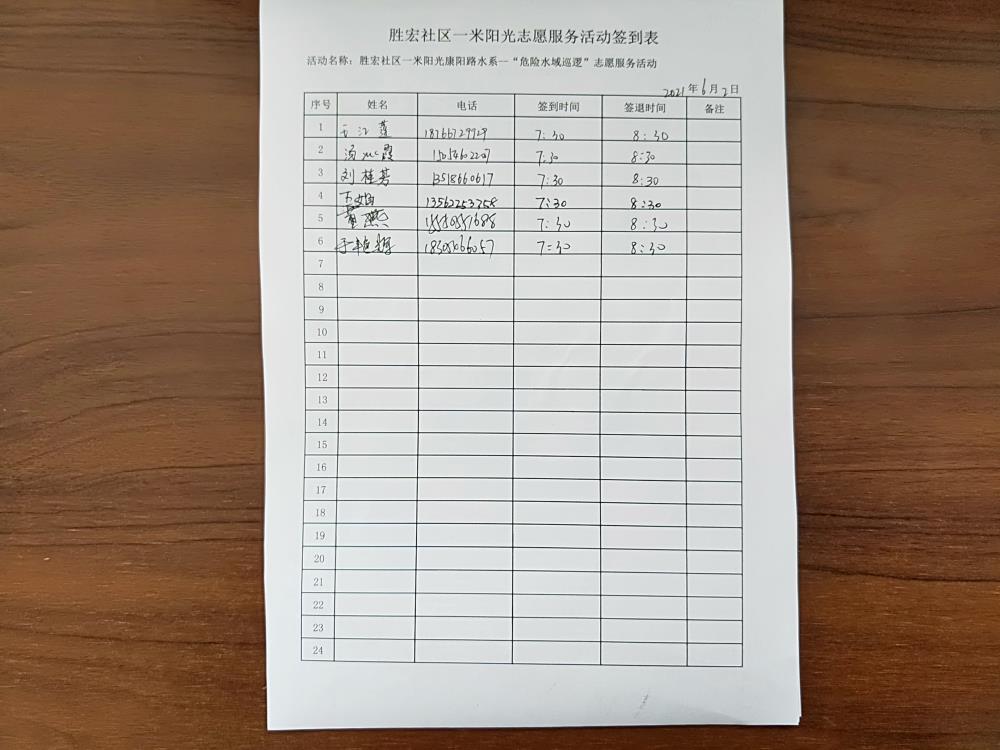 胜宏社区一米阳光志愿服务活动签到表
活动名称：胜宏社区一米阳光康阳路水系--“危险水域巡逻”志愿服务活动
2021年6月2日
序号 姓名 电话 签到时间 签退时间 备注
1 18766729929 7:30 8:30
2 汤 霞 15054602207 7:30 8:30
3 刘桂芳 13518660617 7:30 8:30
4 13562253258 7:30 8:30
5 董燕 7:30 8:30
6 7:30 8:30
7
8
9
10
11
12
13
14
15
16
17
18
19
20
21
22
23
24